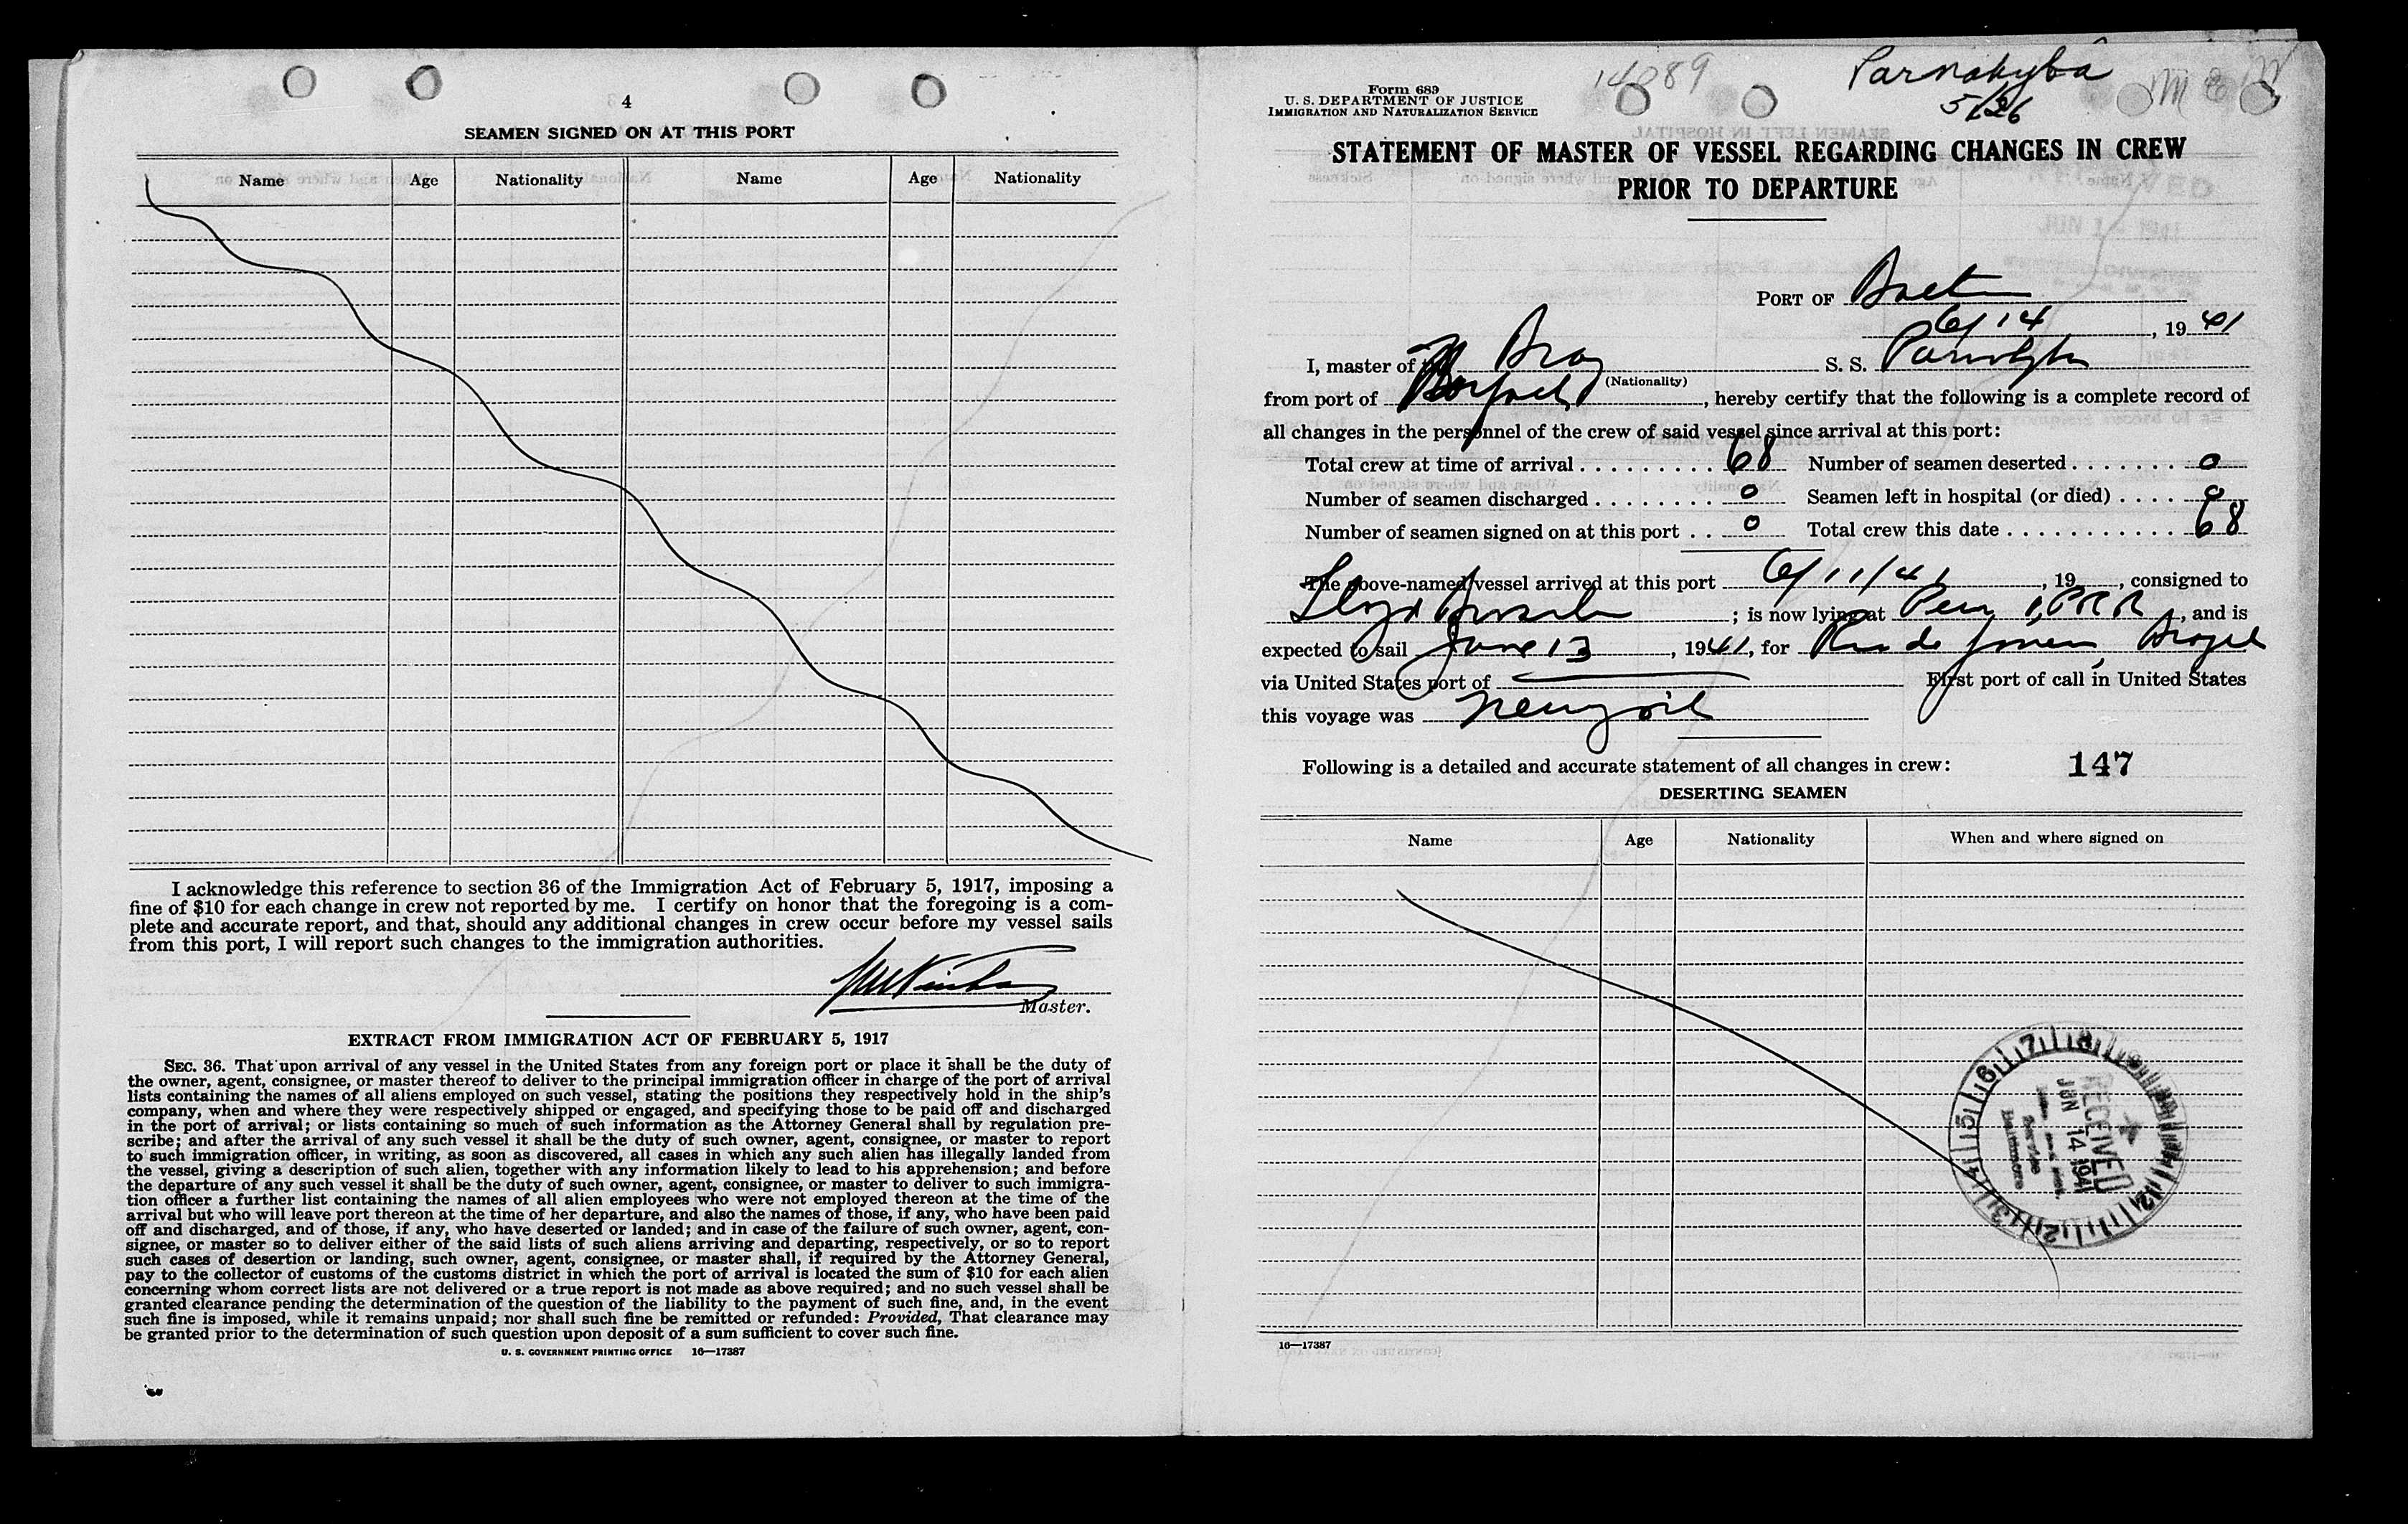 4
SEAMEN SIGNED ON AT THIS PORT
Name Age Nationality Name Age Nationality
I acknowledge this reference to section 36 of the Immigration Act of February 5, 1917, imposing a
fine of $10 for each change in crew not reported by me. I certify on honor that the foregoing is a com-
plete and accurate report, and that, should any additional changes in crew occur before my vessel sails
from this port, I will report such changes to the immigration authorities.
Master.
EXTRACT FROM IMMIGRATION ACT OF FEBRUARY 5, 1917
SEC. 36. That upon arrival of any vessel in the United States from any foreign port or place it shall be the duty of
the owner, agent, consignee, or master thereof to deliver to the principal immigration officer in charge of the port of arrival
lists containing the names of all aliens employed on such vessel, stating the positions they respectively hold in the ship's
company, when and where they were respectively shipped or engaged, and specifying those to be paid off and discharged
in the port of arrival; or lists containing so much of such information as the Attorney General shall by regulation pre-
scribe; and after the arrival of any such vessel it shall be the duty of such owner, agent, consignee, or master to report
to such immigration officer, in writing, as soon as discovered, all cases in which any such alien has illegally landed from
the vessel, giving a description of such alien, together with any information likely to lead to his apprehension; and before
the departure of any such vessel it shall be the duty of such owner, agent, consignee, or master to deliver to such immigra-
tion officer a further list containing the names of all alien employees who were not employed thereon at the time of the
arrival but who will leave port thereon at the time of her departure, and also the names of those, if any, who have been paid
off and discharged, and of those, if any, who have deserted or landed; and in case of the failure of such owner, agent, con-
signee, or master so to deliver either of the said lists of such aliens arriving and departing, respectively, or so to report
such cases of desertion or landing, such owner, agent, consignee, or master shall, if required by the Attorney General,
pay to the collector of customs of the customs district in which the port of arrival is located the sum of $10 for each alien
concerning whom correct lists are not delivered or a true report is not made as above required; and no such vessel shall be
granted clearance pending the determination of the question of the liability to the payment of such fine, and, in the event
such fine is imposed, while it remains unpaid; nor shall such fine be remitted or refunded: Provided, That clearance may
be granted prior to the determination of such question upon deposit of a sum sufficient to cover such fine.
U. S. GOVERNMENT PRINTING OFFICE 16—17387
Parnahyba
5/26
Form 689
U. S. DEPARTMENT OF JUSTICE
IMMIGRATION AND NATURALIZATION SERVICE
STATEMENT OF MASTER OF VESSEL REGARDING CHANGES IN CREW
PRIOR TO DEPARTURE
PORT OF Balto
6/14, 1941
I, master of the Braz S. S. Parnahyba
(Nationality)
from port of, hereby certify that the following is a complete record of
all changes in the personnel of the crew of said vessel since arrival at this port:
Total crew at time of arrival 68 Number of seamen deserted 0
Number of seamen discharged 0 Seamen left in hospital (or died) 0
Number of seamen signed on at this port 0 Total crew this date 68
The above-named vessel arrived at this port 6/11/41, 19, consigned to
Lloyd; is now lying at Pier 1, PRR, and is
expected to sail June 13, 1941, for Rio de Janeiro, Brazil
via United States port of First port of call in United States
this voyage was New York
Following is a detailed and accurate statement of all changes in crew: 147
DESERTING SEAMEN
Name Age Nationality When and where signed on
RECEIVED
JUN 14 1941
Service
Baltimore
16—17387